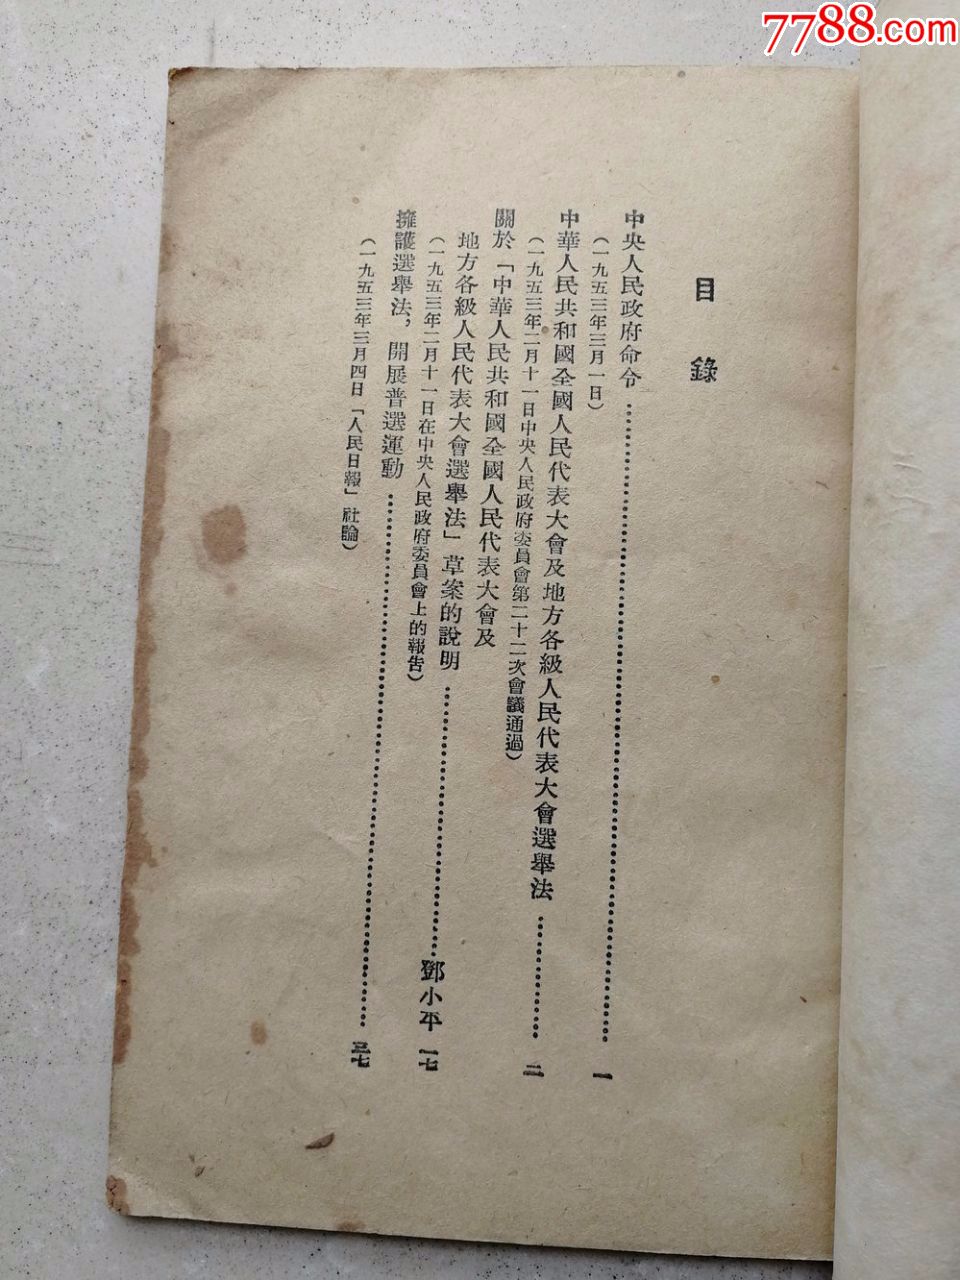 7788.com
目錄
中央人民政府命令……一
(一九五三年三月一日)
中華人民共和國全國人民代表大會及地方各級人民代表大會選舉法……二
(一九五三年二月十一日中央人民政府委員會第二十二次會議通過)
關於「中華人民共和國全國人民代表大會及
地方各級人民代表大會選舉法」草案的說明……鄧小平 一七
(一九五三年二月十一日在中央人民政府委員會上的報告)
擁護選舉法，開展普選運動……三七
(一九五三年三月四日「人民日報」社論)